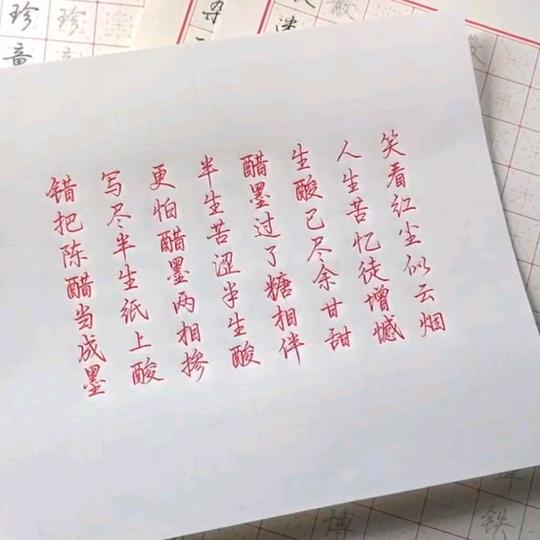 错把陈醋当成墨
写尽半生纸上酸
更怕醋墨两相掺
半生苦涩半生酸
醋墨过了糖相伴
生酸已尽余甘甜
人生苦忆徒增憾
笑看红尘似云烟
珍珍
博
铁